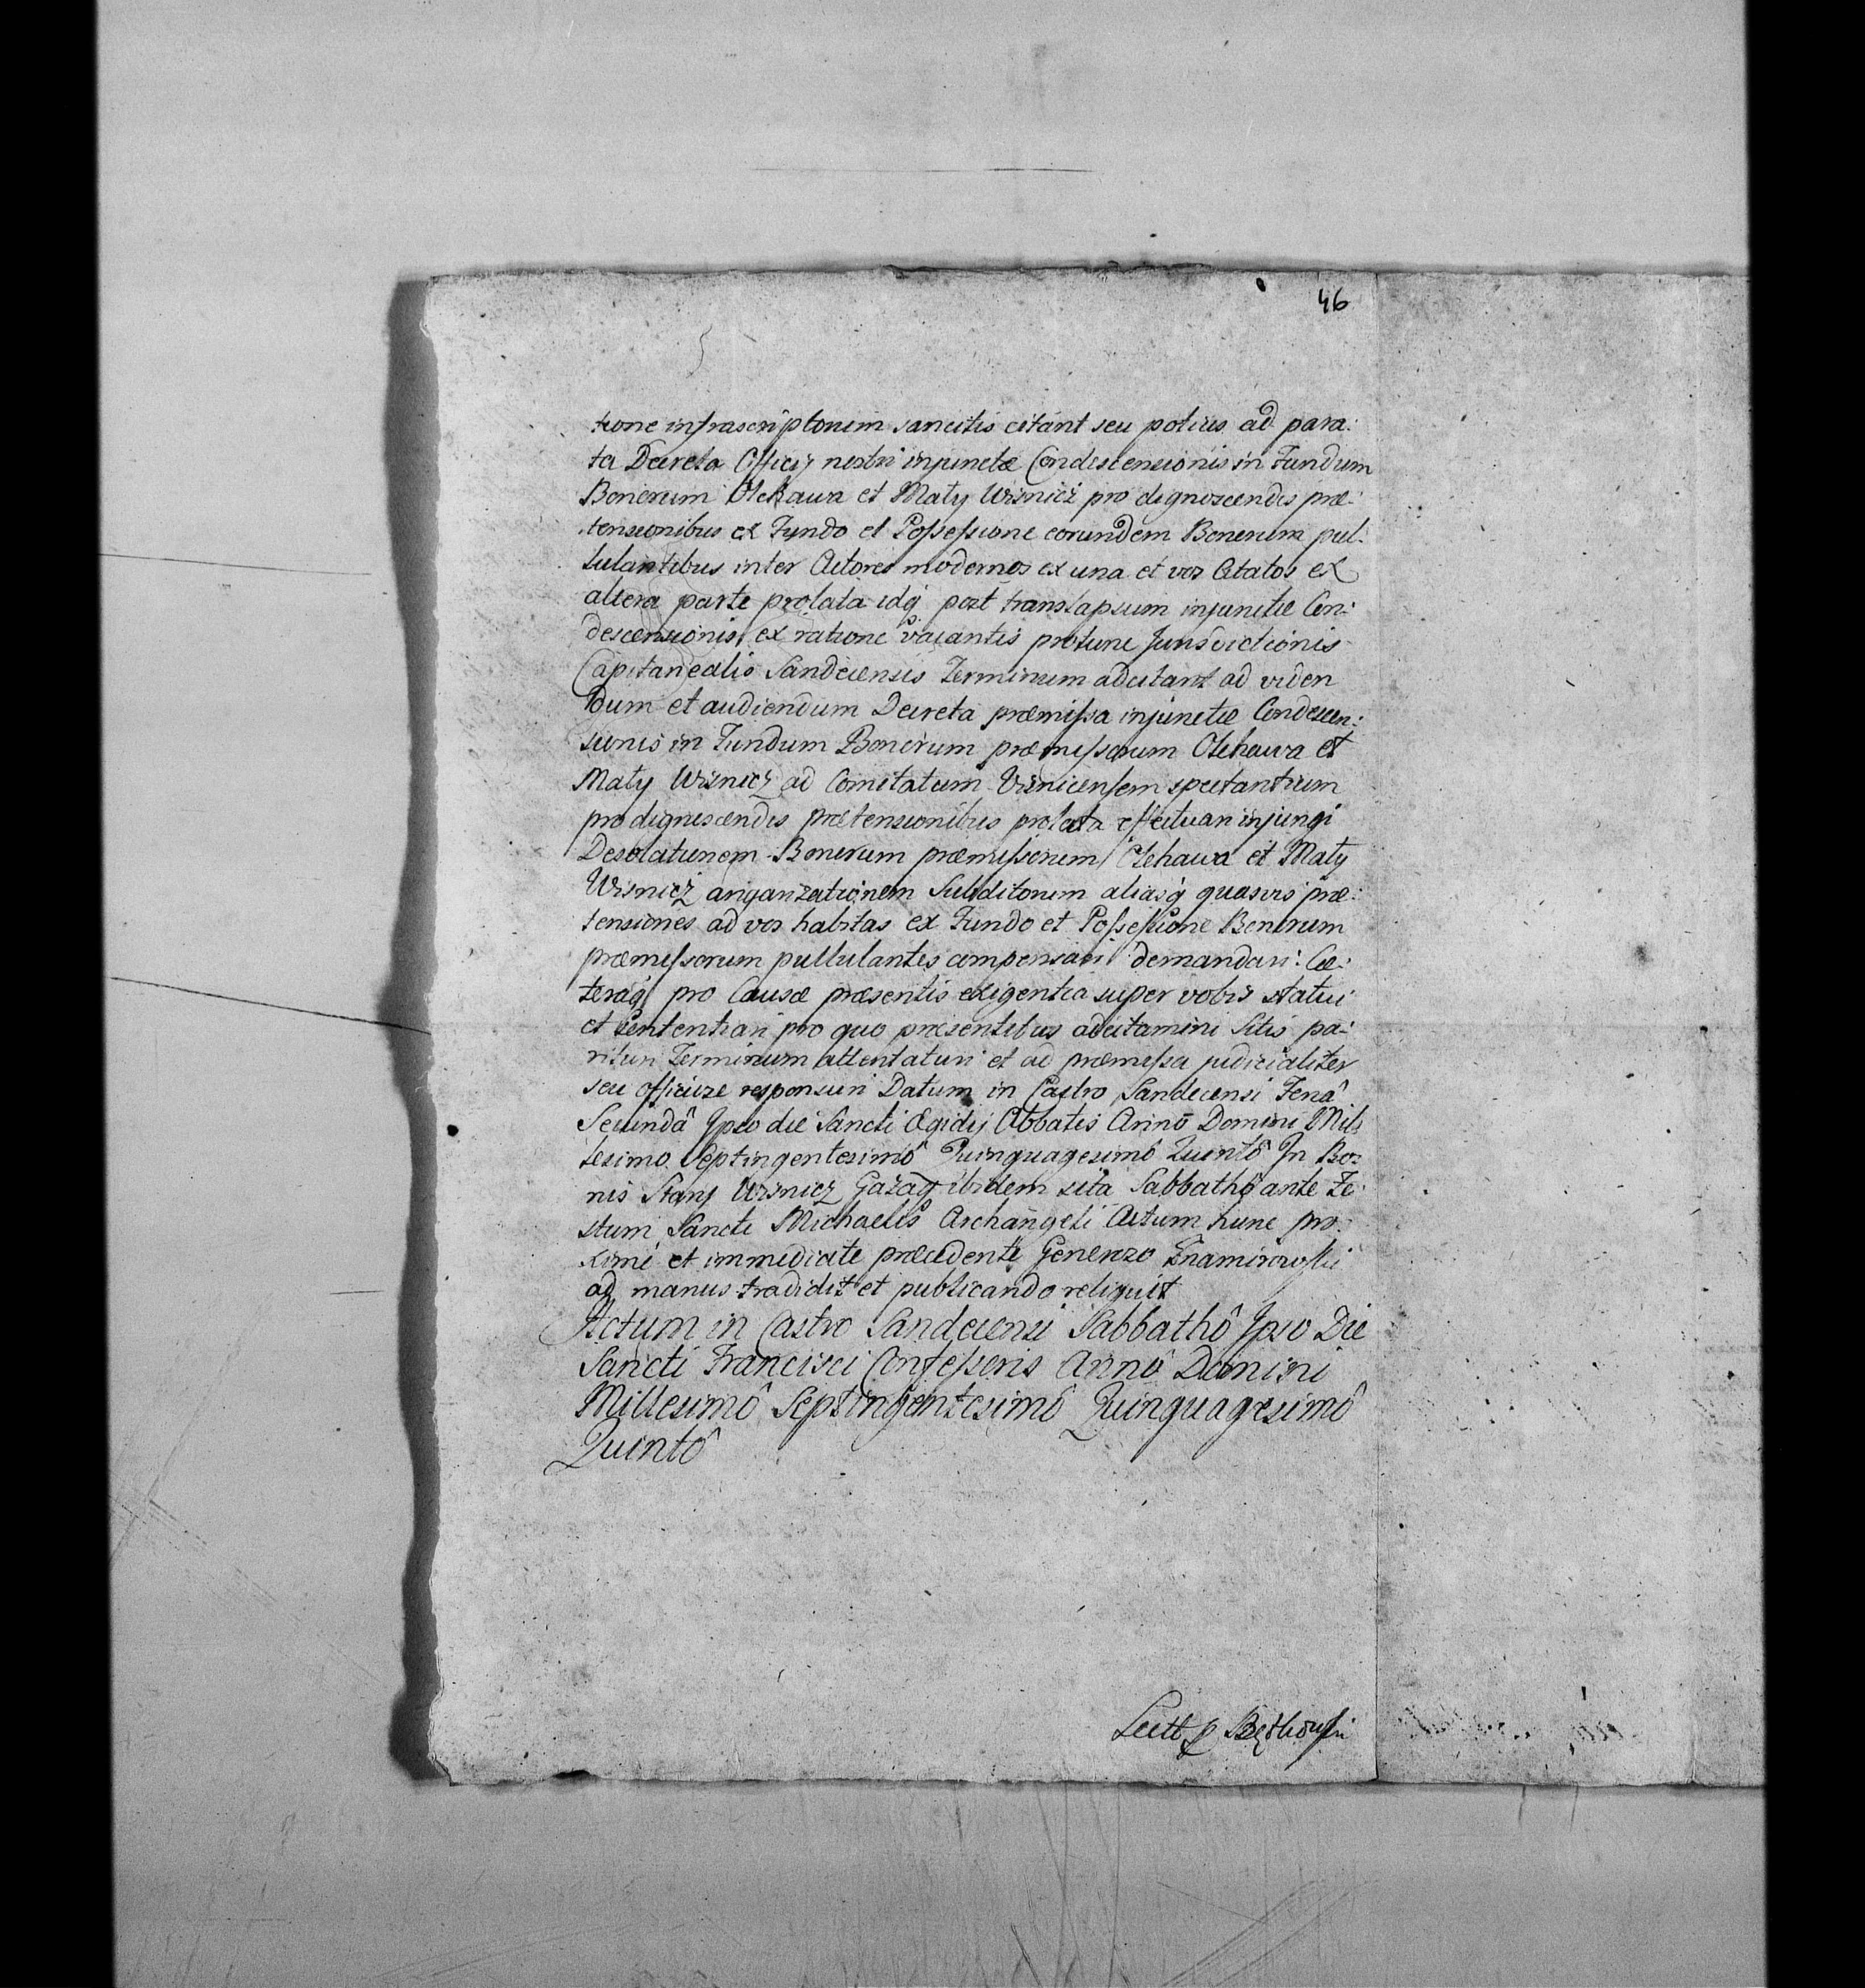 46
tione infrascriptorum sancitis citant seu potius ad para:
ta Decreta Officij nostri injunctæ Condescensionis in Fundum
Bonorum Olchawa et Mały Wiśnicz pro dignoscendis præ:
tensionibus ex Fundo et Possessione eorundem Bonorum pul:
lulantibus inter Actores modernos ex una et vos Citatos ex
altera parte prolata idq post translapsum injunctæ Con:
descensionis ex ratione vacantis protunc Jurisdictionis
Capitanealis Sandecensis Terminum adcitant ad viden
dum et audiendum Decreta præmissa injunctæ Condescen:
sionis in Fundum Bonorum præmissorum Olchawa et
Mały Wisnicz ad Comitatum Visnicensem spectantium
pro dignoscendis prætensionibus prolata effectuari injungi
Desolationem Bonorum præmissorum Olchawa et Mały
Wisnicz ariganzationem Subditorum aliasq quasvis præ:
tensiones ad vos habitas ex Fundo et Possessione Bonorum
præmissorum pullulantes compensari demandari: Cæ:
teraq pro Causæ præsentis exigentia super vobis statui
et sententiari pro quo præsentibus adcitamini Sitis pa:
rituri Terminum attentaturi et ad præmissa judicialiter
seu officiose responsuri Datum in Castro Sandecensi Feriâ
Secundâ Ipso die Sancti Ægidij Abbatis Annô Domini Mil:
lesimo Septingentesimô Quinquagesimô Quintô In Bo:
nis Stary Wisnicz Gazaq ibidem sita Sabbathô ante Fe:
stum Sancti Michaelis Archangeli Actum nunc pro:
ximè et immediate præcedente Generoso Znamirowski
ad manus tradidit et publicando reliquit
Actum in Castro Sandecensi Sabbathô Ipso Die
Sancti Francisci Confessoris Annô Domini
Millesimô Septingentesimô Quinquagesimô
Quintô
Lectt p